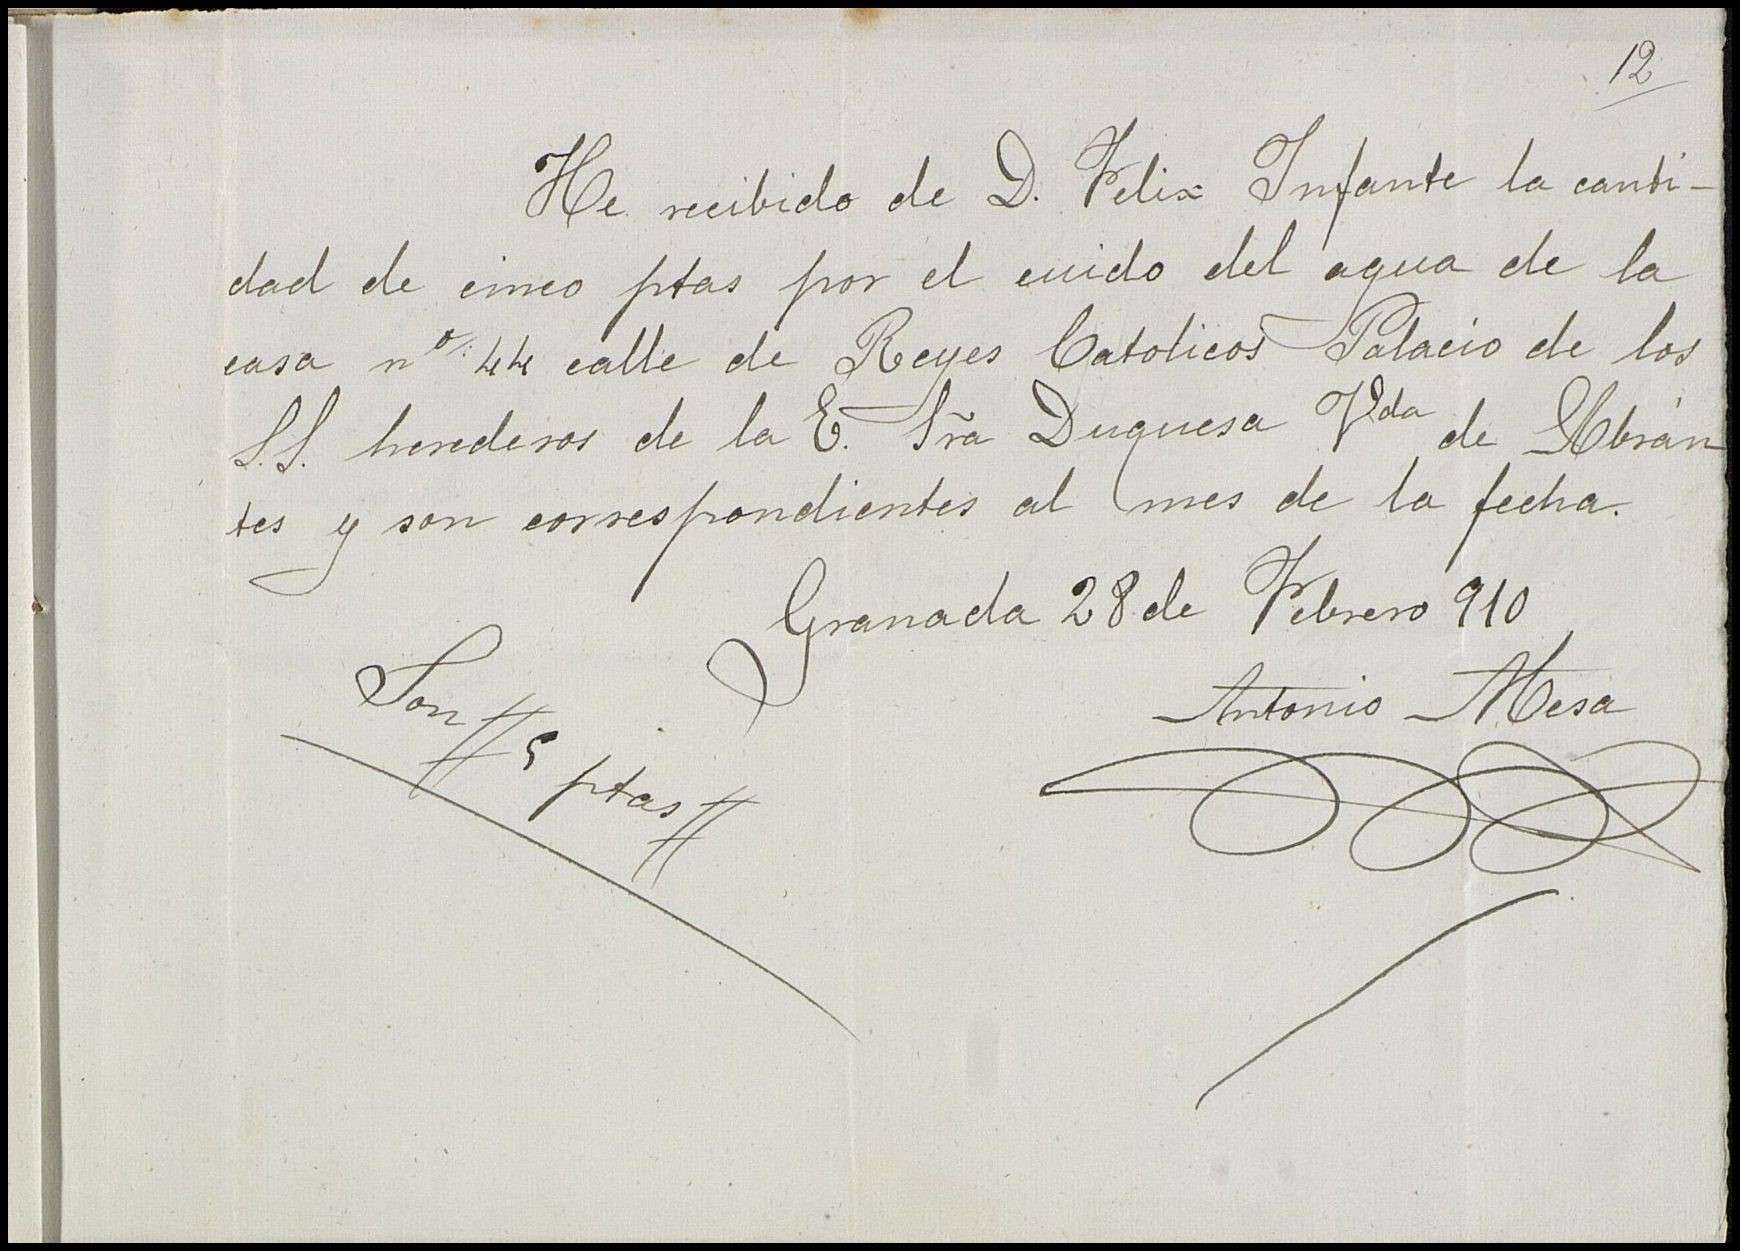 12
He recibido de D. Felix Infante la canti-
dad de cinco ptas por el cuido del agua de la
casa nº 44 calle de Reyes Catolicos Palacio de los
S.S. herederos de la E. Sra Duquesa Vda de Abrán
tes y son correspondientes al mes de la fecha.
Granada 28 de Febrero 910
Antonio Mesa
Son # 5 ptas #